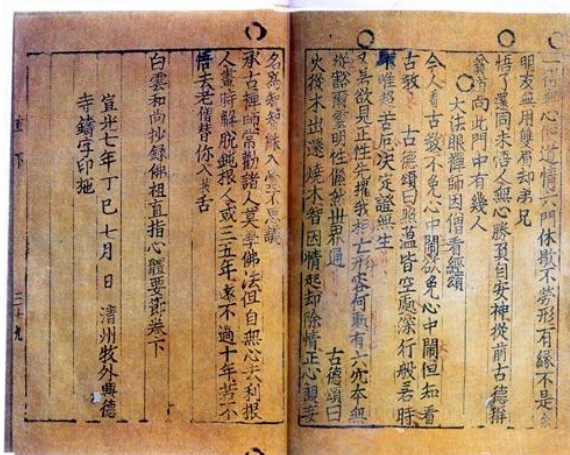 一得無心便道情六門休歇不勞形有緣不是
明友無用雙眉却弟兄
悟了還同未悟人無心勝負自安神從前古德稱
貧道向此門中有幾人
大法眼禪師因僧看經頌
今人看古教不免心中鬧欲免心中鬧但知看
古教 古德頌曰照蘊皆空處深行般若時
不唯超苦厄決定證無生
又 若欲見正性先擢我相亡形容何處有六宂本無
蹤豁爾雲明性儼然世界通 古德頌曰
火從木出還燒木智因情起却除情正心觀妄
名爲智智緣入妄不思議
承古禪師常勸諸人莫學佛法但自無心去利根
人晝時解脫鈍根人或三五年遠不過十年若不
悟去老僧替你入拔舌
白雲和尚抄錄佛祖直指心體要節卷下
宣光七年丁巳七月 日 清州牧外興德
寺鑄字印施
直下
三十九